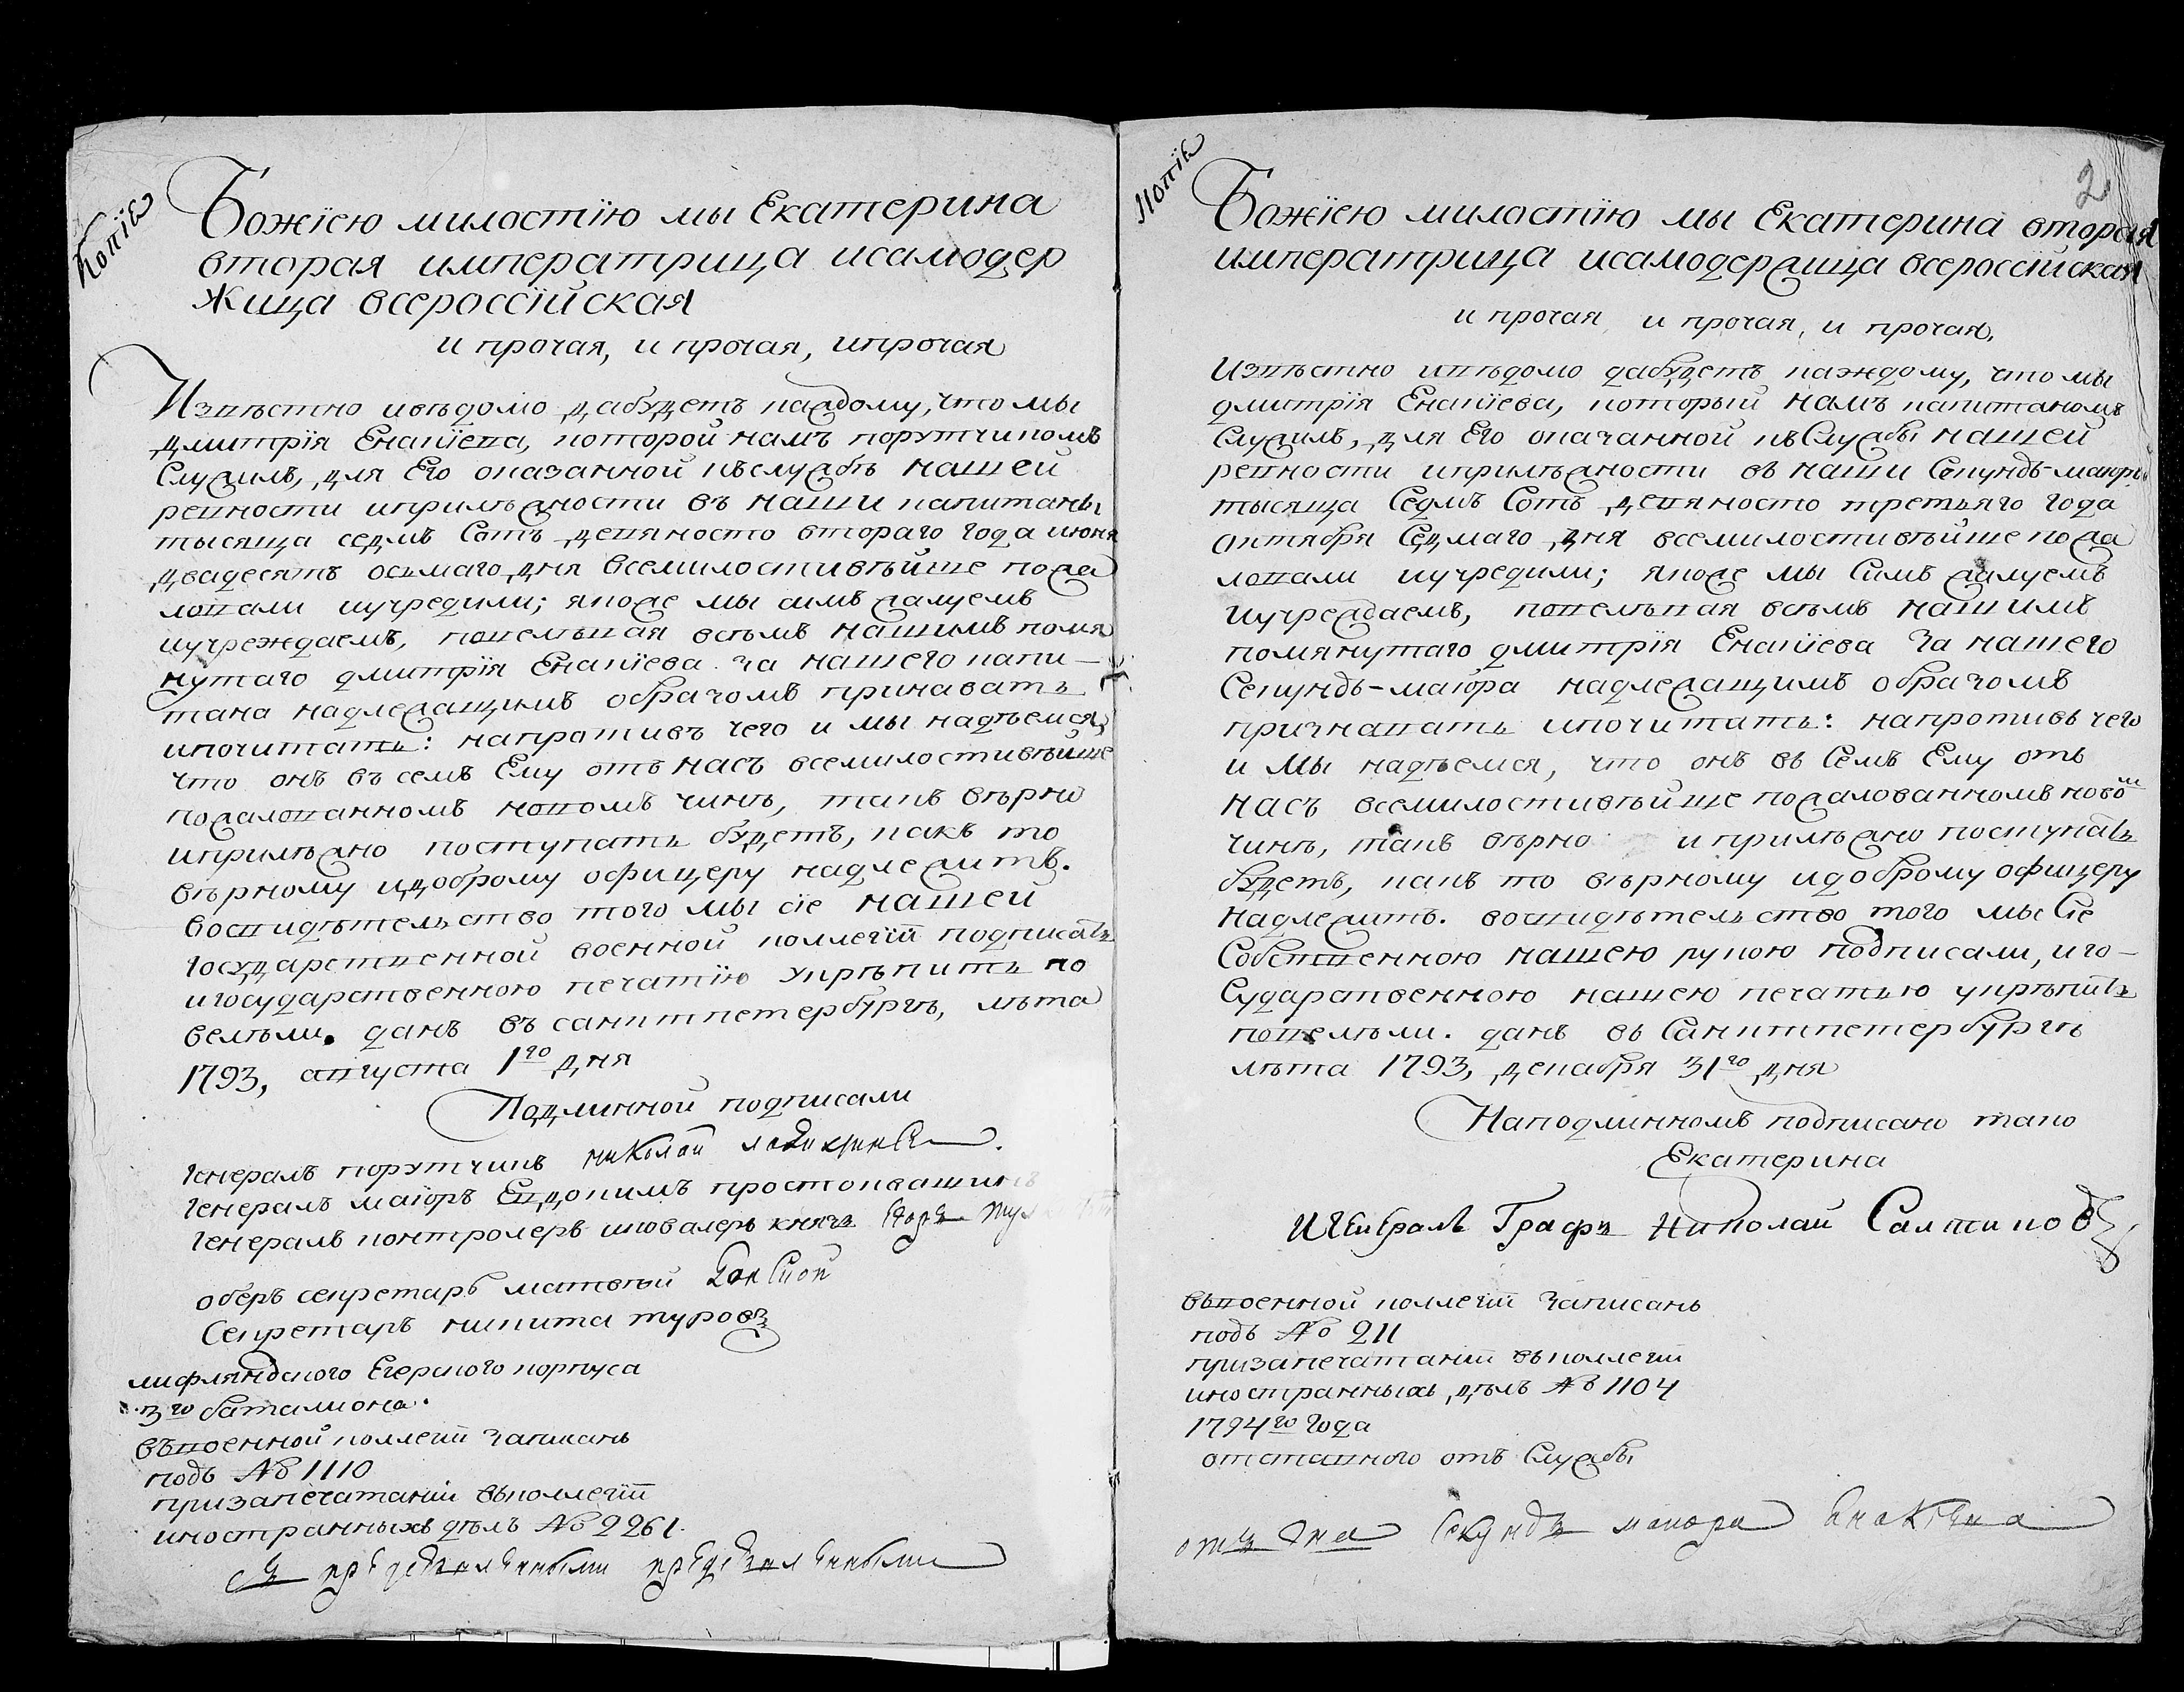 Копїѣ
Божїею милостїю мы Екатерина
вторая императрица исамодер
жица всероссїйская
и прочая, и прочая, ипрочая
Извѣстно ивѣдомо дабудетъ каждому, что мы
дмитрїя Енакїева, которой намъ порутчикомъ
служилъ, для Его оказанной къслужбѣ нашей
ревности иприлѣжности въ наши капитаны
тысяща седмъ сотъ девяносто втораго года июня
двадесять осьмаго дня всемилостивѣйше пожа
ловали иучредили; якоже мы симъ жалуемъ
иучреждаемъ, повелѣвая всѣмъ нашимъ помя
нутаго дмитрїя Енакїева за нашего капи-
тана надлежащимъ образомъ признавать
ипочитать: напротивъ чего и мы надѣемся,
что онъ въ семъ Ему отъ насъ всемилостивѣйше
пожалованномъ новомъ чинѣ, такъ вѣрно
иприлѣжно поступать будетъ, какъ то
вѣрному идоброму офицеру надлежитъ.
восвидѣтельство того мы сїе нашей
государственной военной коллегїи подписать
игосударственною печатїю укрѣпить по
велѣли. данъ въ санктпетербургѣ, лѣта
1793, августа 1го дня
Подлинной подписали
генералъ порутчикъ николай
генералъ маїоръ Евдокимъ простоквашинъ
генералъ контролеръ иковалеръ князь
оберъ секретарь матвѣй
Секретарь никита туровъ
лифляндского Егерского корпуса
3го баталиона.
въвоенной коллегїи записанъ
подъ № 1110
призапечатанїи вьколлегїи
иностранныхъ дѣлъ № 2261.
съ
Копїѣ
2
Божїею милостїю мы Екатерина вторая
императрица исамодержица всероссїйская
и прочая, и прочая, и прочая,
Извѣстно ивѣдомо дабудетъ каждому, что мы
дмитрїя Енакїева, который намъ капитаномъ
служилъ, для Его оказанной къслужбы нашей
ревности иприлѣжности въ наши секундъ-маиоры
тысяща седмъ сотъ девяносто третьяго года
октября седмаго дня всемилостивѣйше пожа
ловали иучредили; якоже мы симъ жалуемъ
иучреждаемъ, повелѣвая всѣмъ нашимъ
помянутаго дмитрїя Енакїева за нашего
секундъ-маїора надлежащимъ образомъ
признавать ипочитать: напротивъ чего
и мы надѣемся, что онъ въ семъ Ему отъ
насъ всемилостивѣйше пожалованномъ новом
чинѣ, такъ вѣрно и прилѣжно поступать
будетъ, какъ то вѣрному идоброму офицеру
надлежитъ. восвидѣтельство того мы сїе
собственною нашею рукою подписали, иго-
сударственною нашею печатью укрѣпить
повелѣли. данъ въ Санктпетербургѣ
лѣта 1793, декабря 31го дня
Наподлинномъ подписано тако
Екатерина
Графъ николай Салтыковъ
вьвоенной коллегїи записанъ
подъ № 211
призапечатанїи вьколлегїи
иностранныхъ дѣлъ № 1104
1794го года
отставного отъ службы
секундъ маиора